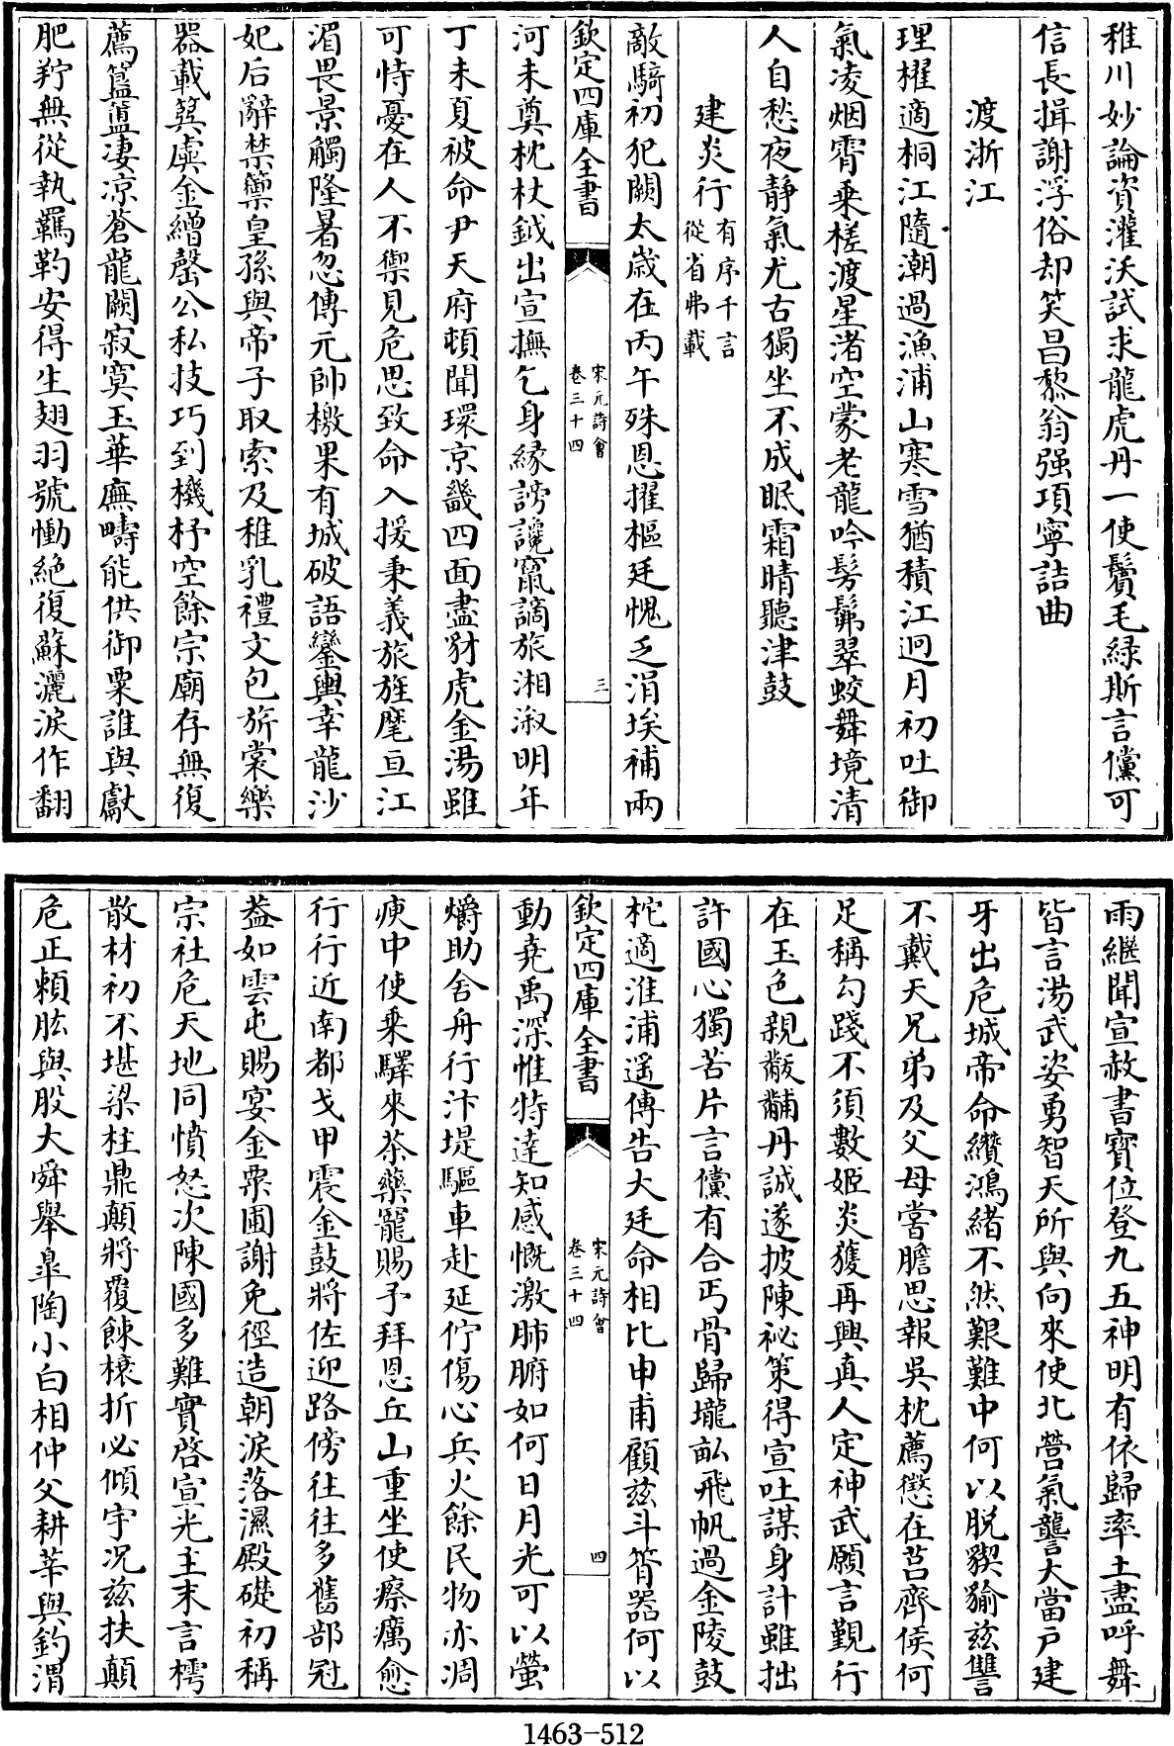 稚川妙論資灌沃試求龍虎丹一使鬢毛綠斯言儻可
信長揖謝浮俗却笑昌黎翁强項寧詰曲
渡浙江
理櫂適桐江隨潮過漁浦山寒雪猶積江迥月初吐御
氣凌烟霄乗槎渡星渚空蒙老龍吟髣髴翠蛟舞境清
人自愁夜静氣尤古獨坐不成眠霜晴聽津鼓
建炎行有序千言從省弗載
敵騎初犯闕太歲在丙午殊恩擢樞廷愧乏涓埃補兩
欽定四庫全書
宋元詩會
卷三十四
三
河未奠枕杖鉞出宣撫乞身縁謗讒竄謫旅湘漵明年
丁未夏被命尹天府頓聞環京畿四面盡豺虎金湯雖
可恃憂在人不禦見危思致命入援秉義旅旌麾亘江
湄畏景觸隆暑忽傳元帥檄果有城破語鑾輿幸龍沙
妃后辭禁籞皇孫與帝子取索及稚乳禮文包旂裳樂
器載筦虡金繒罄公私技巧到機杼空餘宗廟存無復
薦簠簋凄凉蒼龍闕寂寞玉華廡疇能供御粟誰與獻
肥羜無從執羈靮安得生翅羽號慟絶復蘇灑淚作翻
雨繼聞宣赦書寶位登九五神明有依歸率土盡呼舞
皆言湯武姿勇智天所與向來使北營氣讋大當戸建
牙出危城帝命纘鴻緒不然艱難中何以脱猰㺄兹讐
不戴天兄弟及父母嘗膽思報吳枕薦懲在莒齊侯何
足稱勾踐不須數姬炎獲再興真人定神武願言觐行
在玉色親黻黼丹誠遂披陳祕策得宣吐謀身計雖拙
許國心獨苦片言儻有合丐骨歸壠畝飛帆過金陵鼓
柁適淮浦遥傳告大廷命相比申甫顧兹斗筲器何以
欽定四庫全書
宋元詩會
卷三十四
四
動堯禹深惟特達知感慨激肺腑如何日月光可以螢
爝助舍舟行汴堤驅車赴延佇傷心兵火餘民物亦凋
瘐中使乗驛來茶藥寵賜予拜恩丘山重坐使瘵癘愈
行行近南都戈甲震金鼓將佐迎路傍往往多舊部冠
葢如雲屯賜宴金粟圃謝免徑造朝淚落濕殿礎初稱
宗社危天地同憤怒次陳國多難實啓宣光主末言樗
散材初不堪梁柱鼎顛將覆餗榱折必傾宇况兹扶顛
危正頼肱與股大舜舉臯陶小白相仲父耕莘與釣渭
1463-512